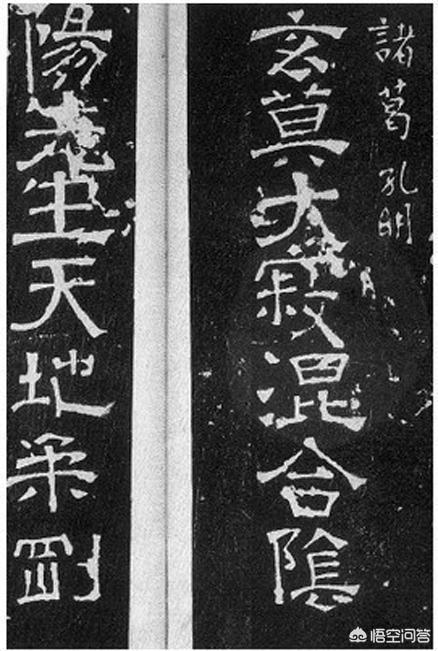 諸葛孔明
玄莫大寂混合陰
陽先生天地柔剛
悟空问答